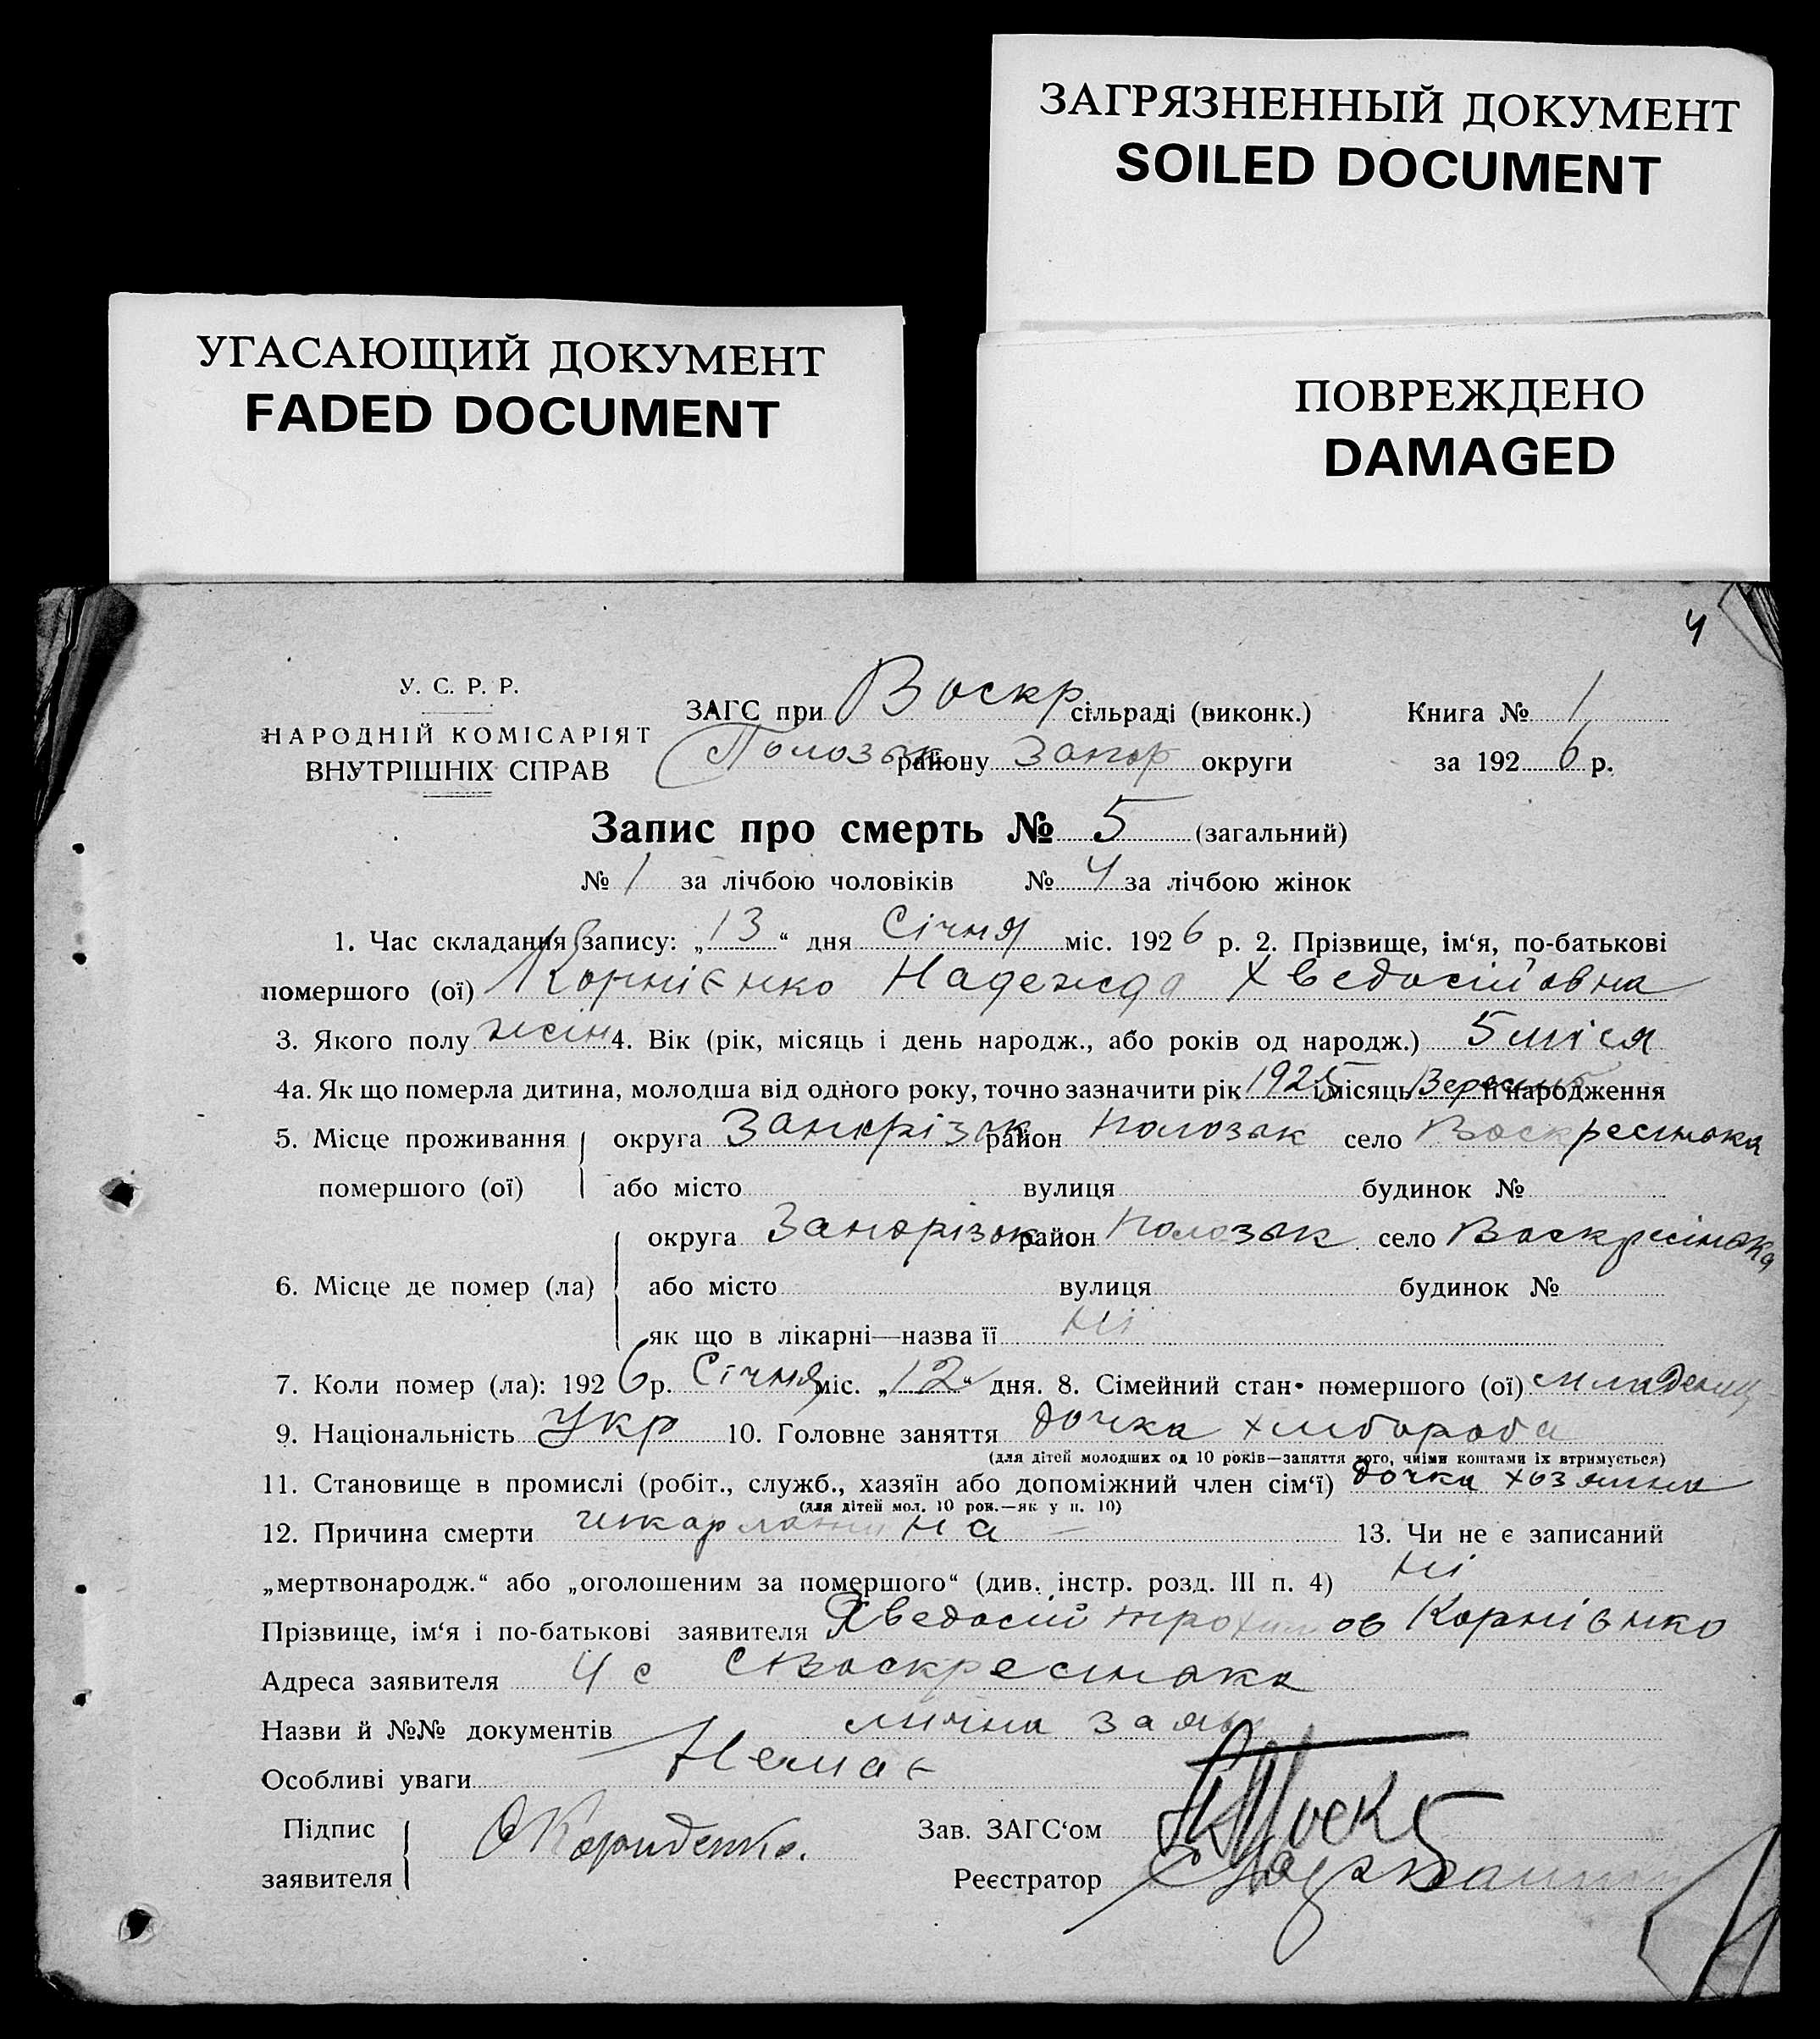 ЗАГРЯЗНЕННЫЙ ДОКУМЕНТ
SOILED DOCUMENT
УГАСАЮЩИЙ ДОКУМЕНТ
FADED DOCUMENT
ПОВРЕЖДЕНО
DAMAGED
4
У. С. Р. Р.
НАРОДНІЙ КОМІСАРІЯТ
ВНУТРІШНІХ СПРАВ
ЗАГС при Воскр сільраді (виконк.) Книга № 1
Полозьк району Запор округи за 1926 р.
Запис про смерть № 5 (загальний)
№ 1 за лічбою чоловіків № 4 за лічбою жінок
1. Час складання запису: „13“ дня Січня міс. 1926 р. 2. Прізвище, ім‘я, по-батькові
помершого (ої) Корнієнко Надежда Хведосійовна
3. Якого полу жін 4. Вік (рік, місяць і день народж., або років од народж.) 5 міся
4а. Як що померла дитина, молодша від одного року, точно зазначити рік 1925 і місяць її народження
5. Місце проживання округа Запорізьк район Полозьк село Воскресінька
помершого (ої) або місто вулиця будинок №
округа Запорізьк район Полозьк село Воскресінька
6. Місце де помер (ла) або місто вулиця будинок №
як що в лікарні—назва її ні
7. Коли помер (ла): 1926 р. Січня міс. „12“ дня. 8. Сімейний стан помершого (ої) младенец
9. Національність Укр 10. Головне заняття дочка хлібороба
(для дітей молодших од 10 років—заняття того, чиїми коштами їх втримується)
11. Становище в промислі (робіт., служб., хазяїн або допоміжний член сім‘ї) дочка хозяина
(для дітей мол. 10 рок.—як у п. 10)
12. Причина смерти шкарлатина 13. Чи не є записаний
„мертвонародж.“ або „оголошеним за помершого“ (див. інстр. розд. III п. 4) ні
Прізвище, ім‘я і по-батькові заявителя Хведосій Трохимов Корнієнко
Адреса заявителя с Воскресінька
Назви й №№ документів лична заява
Особливі уваги Немає
Підпис Зав. ЗАГС‘ом
заявителя Реєстратор